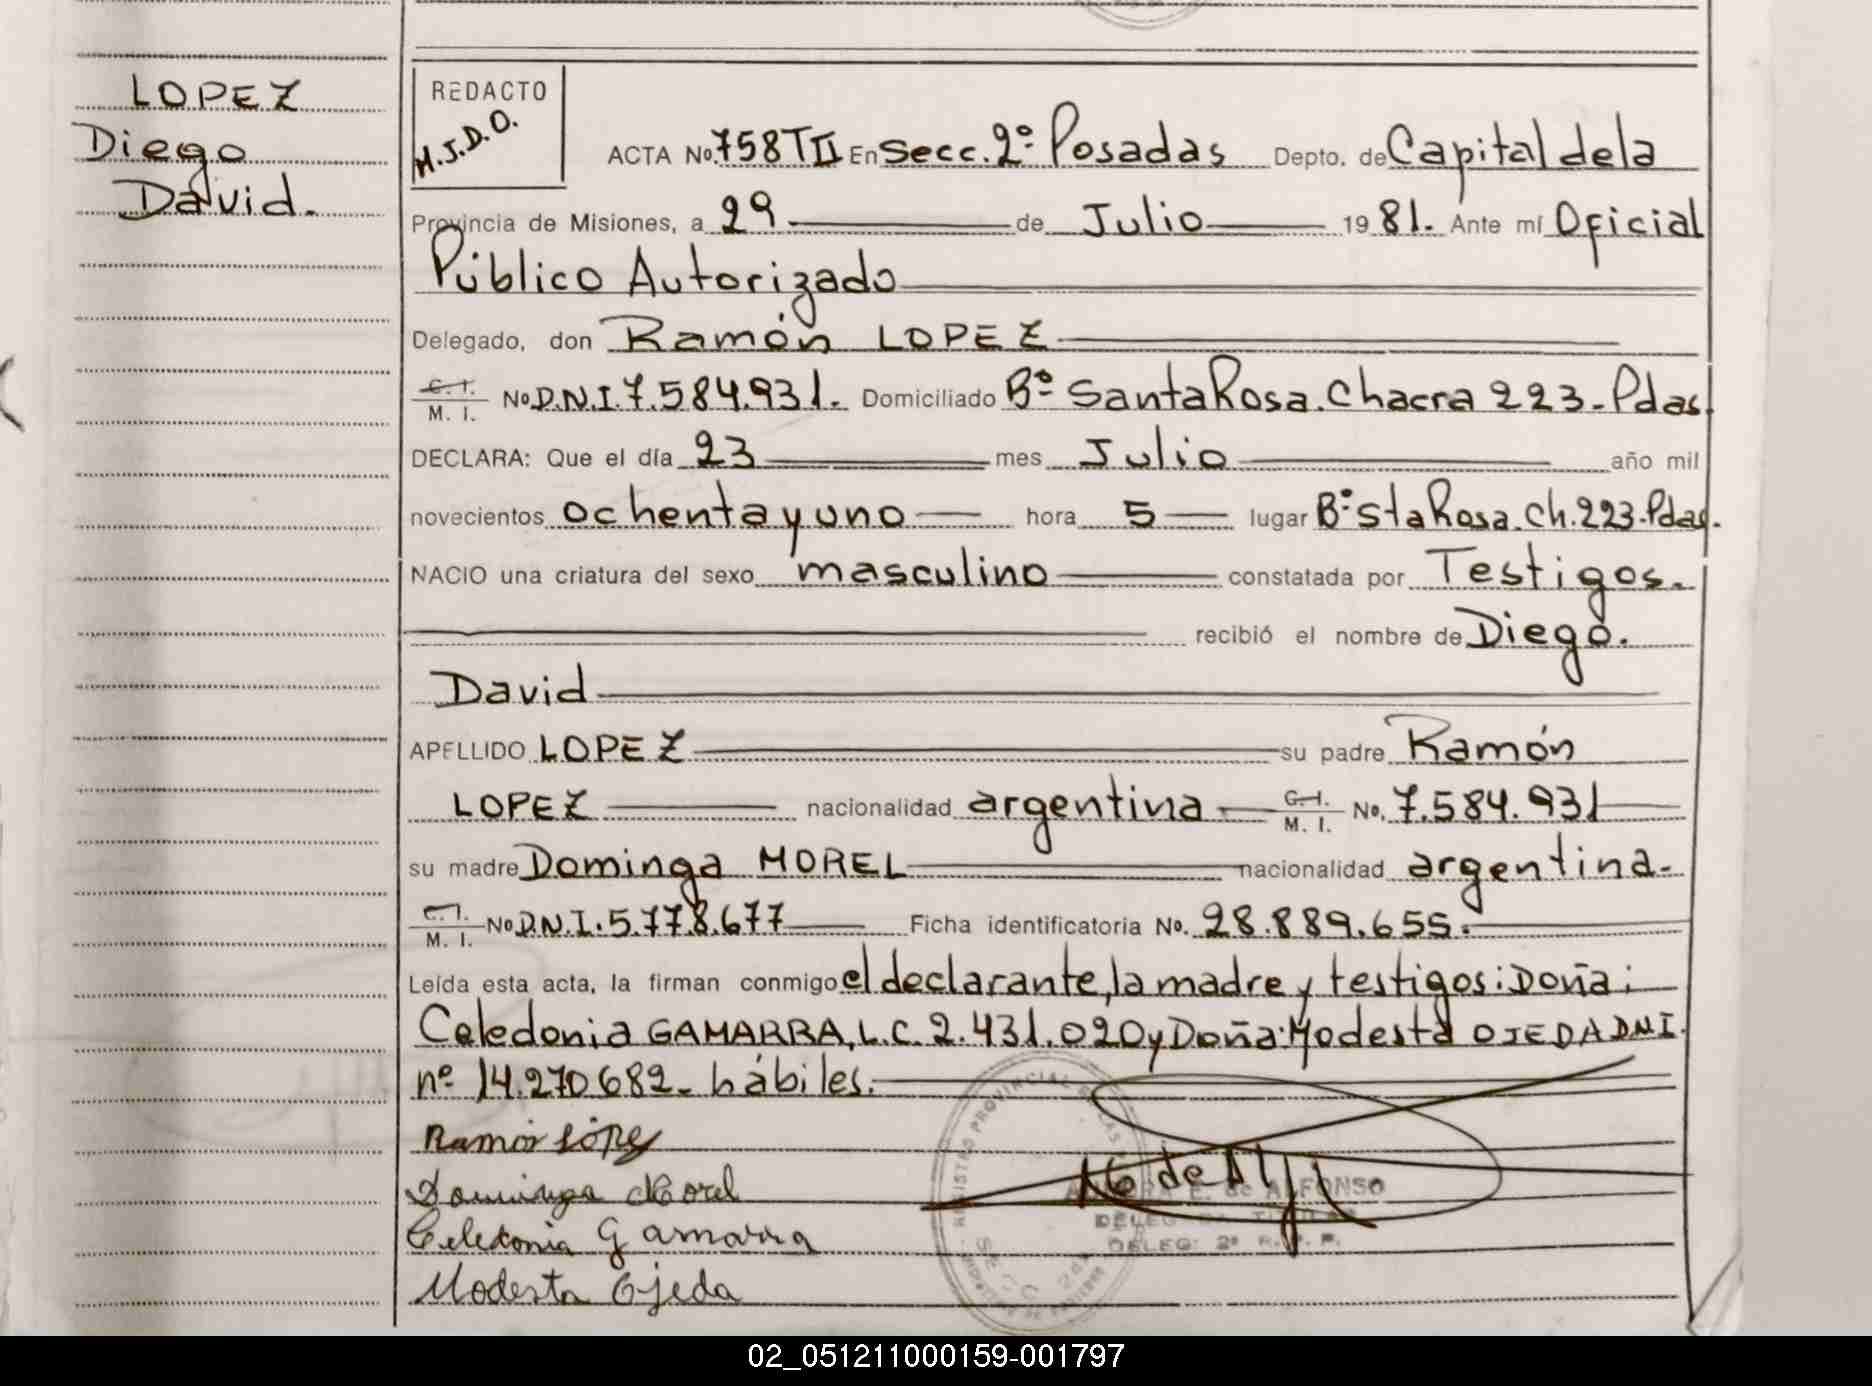 LOPEZ
Diego
David.
REDACTO
M.J.D.O.
ACTA No. 758 T II En Secc. 2º Posadas Depto. de Capital de la
Provincia de Misiones, a 29 de Julio 1981. Ante mí Oficial
Público Autorizado
Delegado, don Ramón LOPEZ
C. I. / M. I. No D.N.I. 7.584.931. Domiciliado Bº Santa Rosa. Chacra 223 - Pdas.
DECLARA: Que el día 23 mes Julio año mil
novecientos ochenta y uno hora 5 lugar Bº Sta Rosa. Ch. 223 - Pdas.
NACIO una criatura del sexo masculino constatada por Testigos.
recibió el nombre de Diego.
David
APELLIDO LOPEZ su padre Ramón
LOPEZ nacionalidad argentina C. I. / M. I. No. 7.584.931
su madre Dominga MOREL nacionalidad argentina -
C. I. / M. I. No D.N.I. 5.778.677 Ficha identificatoria No. 28.889.655.
Leída esta acta, la firman conmigo el declarante, la madre y testigos: Doña:
Celedonia GAMARRA, L.C. 2.431.020 y Doña: Modesta OJEDA DNI.
nº 14.270.682 - hábiles.
Ramón López
Dominga Morel
Celedonia Gamarra
Modesta Ojeda
REGISTRO PROVINCIAL DE LAS
E. de ALFONSO
DELEGADA TITULAR
DELEG. 2º R. P. P.
02_051211000159-001797